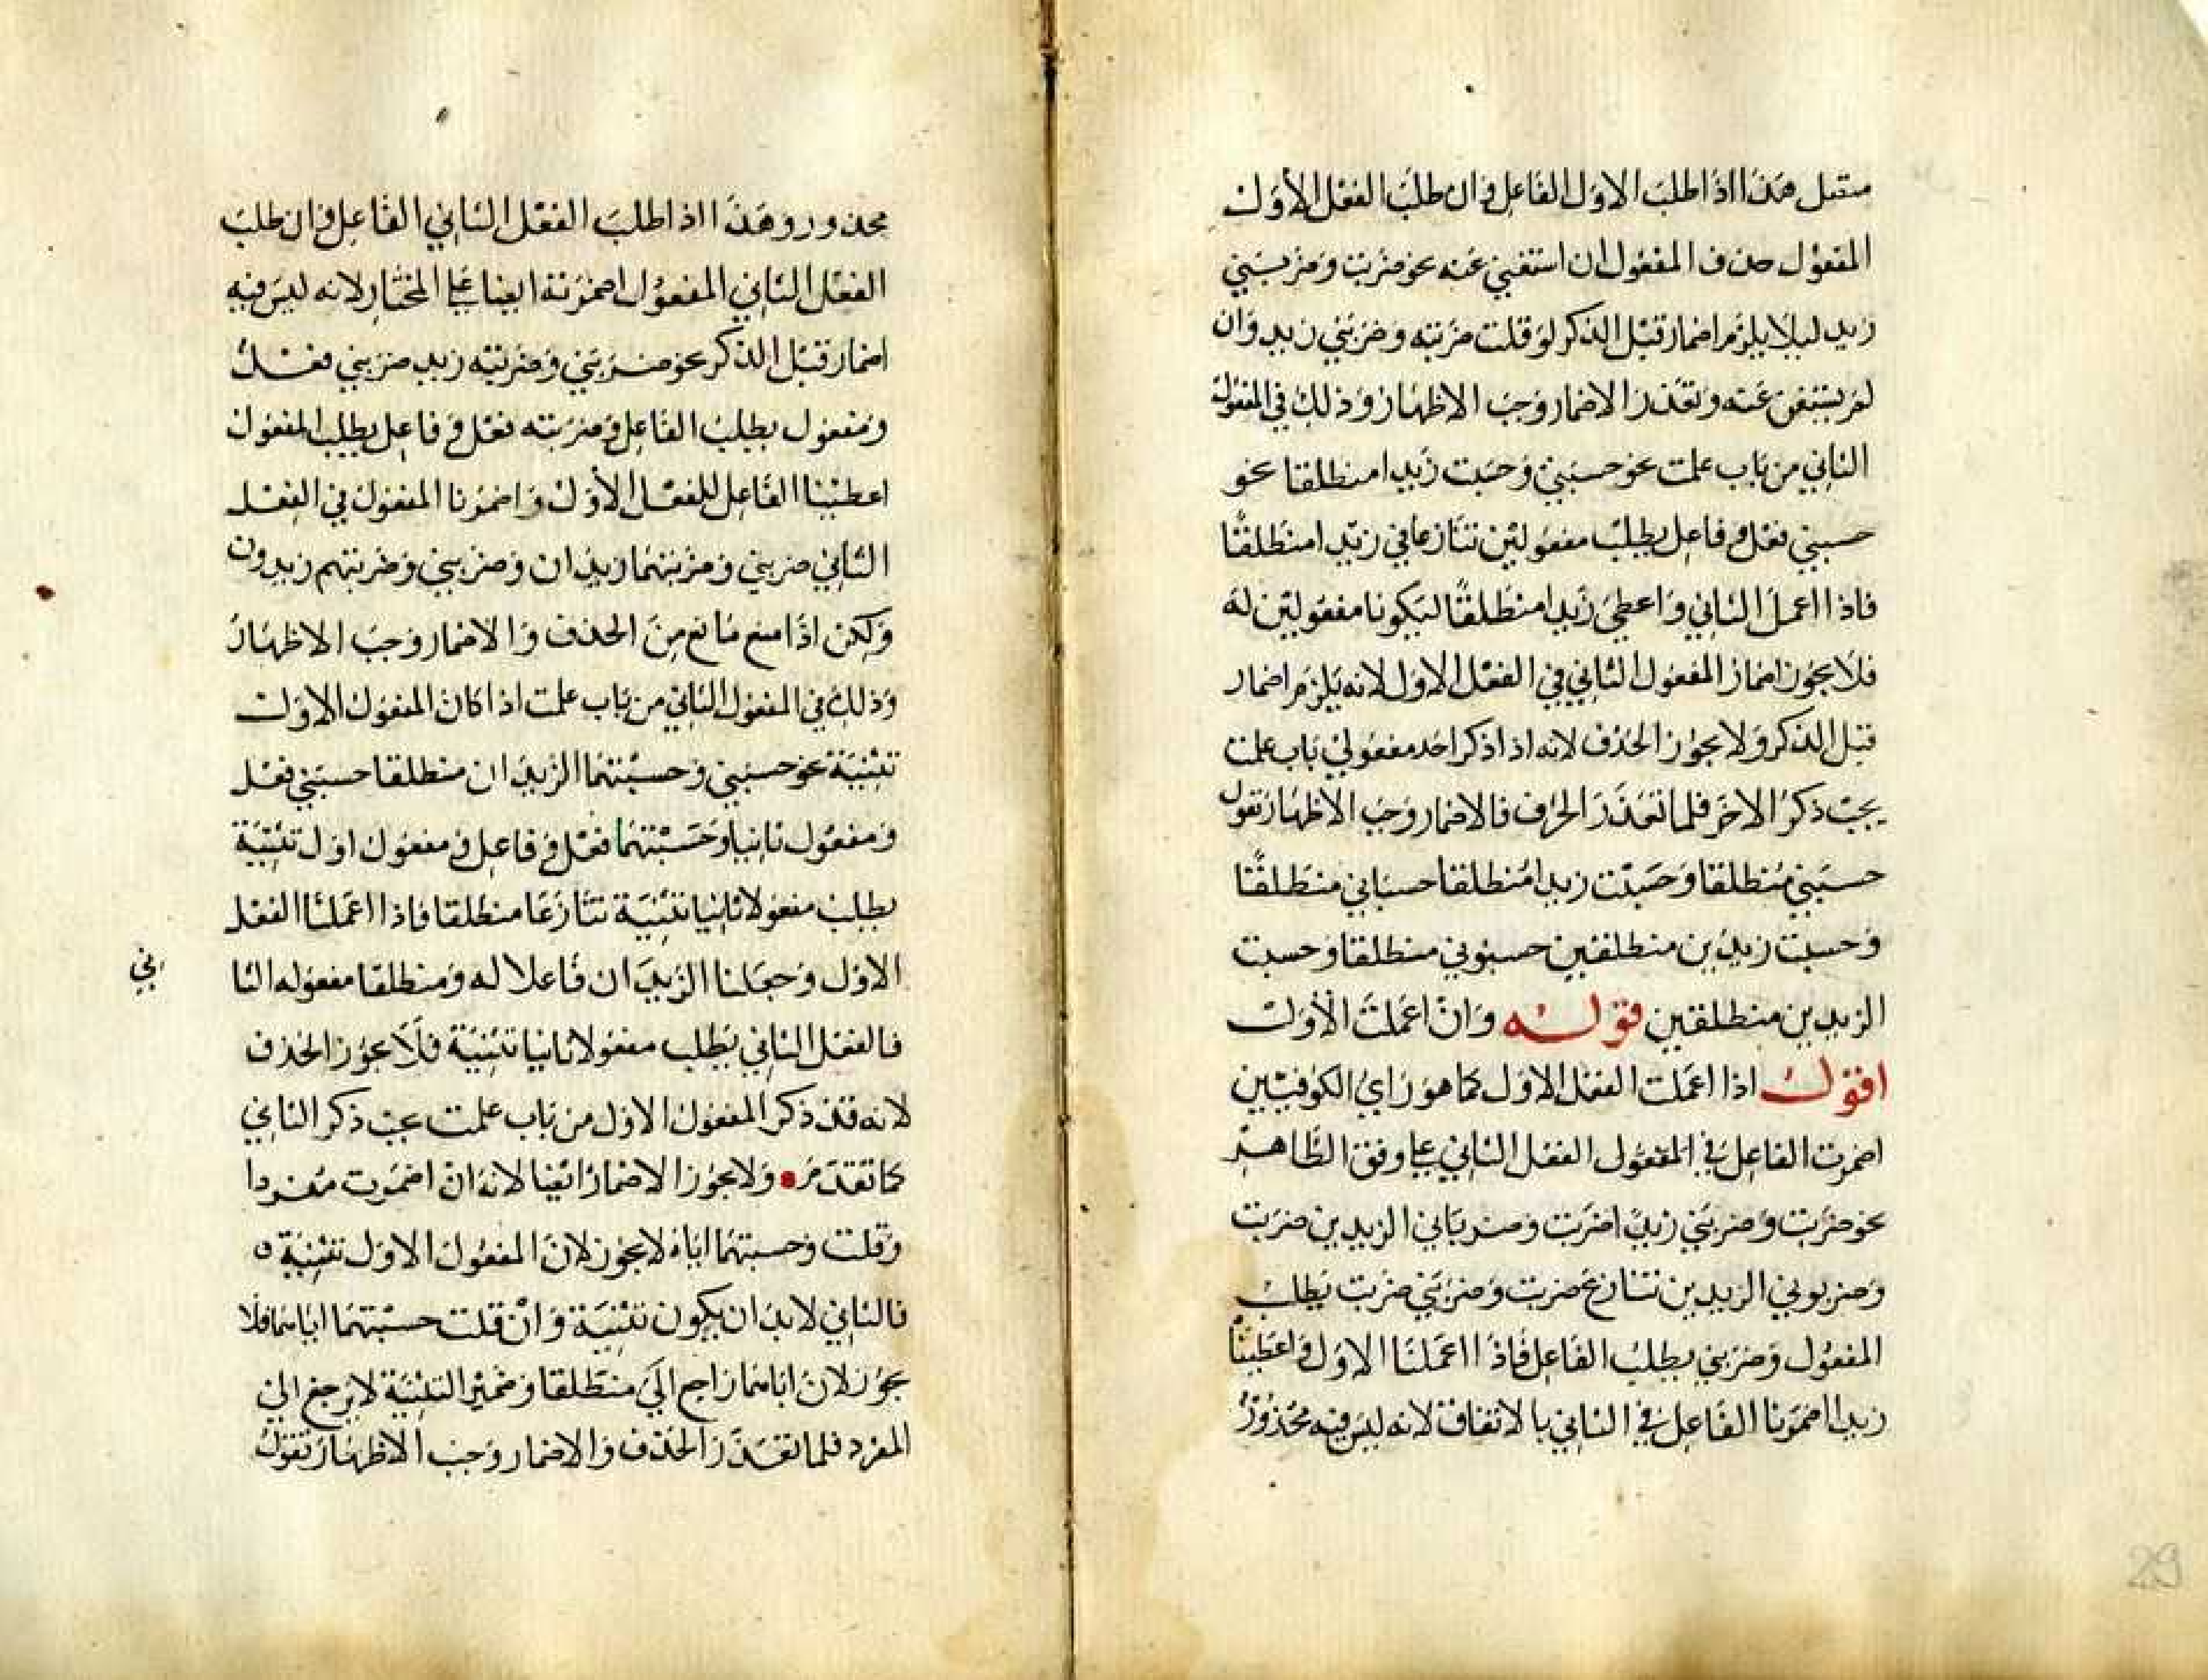 متصل هذا اذا طلب الاول الفاعل وان طلب الفعل الأول
المفعول حذف المفعول ان استغني عنه نحو ضربت وضربني
زيد ليلا يلزم اضمار قبل الذكر لو قلت ضربته وضربني زيد وان
لم يستغن عنه وتعذر الاضمار وجب الاظهار وذلك في المفعول
الثاني من باب علمت نحو حسبني وحسبت زيدا منطلقا نحو
حسبني فعل وفاعل يطلب مفعولين تنازعا في زيدا منطلقًا
فاذا اعمل الثاني واعطي زيدا منطلقًا ليكونا مفعولين له
فلا يجوز اضمار المفعول الثاني في الفعل الاول لانه يلزم اضمار
قبل الذكر ولا يجوز الحذف لانه اذا ذكر احد مفعولي باب علمت
يجب ذكر الاخر فلما تعذر الحذف فالاضمار وجب الاظهار تقول
حسبني منطلقا وحسبت زيدا منطلقا حسباني منطلقًا
وحسبت زيدين منطلقين حسبوني منطلقا وحسبت
الزيدين منطلقين قوله وان اعملت الأول
اقول اذا اعملت الفعل الاول كما هو راي الكوفيين
اضمرت الفاعل في المفعول الفعل الثاني علي وفق الظاهر
نحو ضربت وضربني زيدا ضربت وضرباني الزيدين ضربت
وضربوني الزيدين تنازع ضربت وضربني ضربت يطلب
المفعول وضربني يطلب الفاعل فاذا اعملنا الاول واعطينا
زيدا اضمرنا الفاعل في الثاني بالاتفاق لانه ليس فيه محذور
محذور وهذا اذا طلب الفعل الثاني الفاعل وان طلب
الفعل الثاني المفعول اضمرته ايضا علي المختار لانه ليس فيه
اضمار قبل الذكر نحو ضربني وضربته زيد ضربني فعل
ومفعول يطلب الفاعل وضربته فعل وفاعل يطلب المفعول
اعطينا الفاعل للفعل الأول واضمرنا المفعول في الفعل
الثاني ضربني وضربتهما زيدان وضربني وضربتهم زيدون
ولكن اذا منع مانع من الحذف والاضمار وجب الاظهار
وذلك في المفعول الثاني من باب علمت اذا كان المفعول الاول
تثنية نحو حسبني وحسبتهما الزيدان منطلقا حسبني فعل
ومفعول ثانيا وحسبتهما فعل وفاعل ومفعول اول تثنية
يطلب مفعولا ثانيا تثنية تنازعا منطلقا فاذا اعملنا الفعل
الاول وجعلنا الزيدان فاعلا له ومنطلقا مفعوله الثا
ني
فالفعل الثاني يطلب مفعولا ثانيا تثنية فلا يجوز الحذف
لانه قد ذكر المفعول الاول من باب علمت يجب ذكر الثاني
كما تقدم ولا يجوز الاضمار ايضا لانه ان اضمرت مفردا
وقلت وحسبتهما اياه لا يجوز لان المفعول الاول تثنية ه
فالثاني لابد ان يكون تثنية وان قلت حسبتهما اياهما فلا
يجوز لان اياهما راجع الي منطلقا وضمير التثنية لا يرجع الي
المفرد فلما تعذر الحذف والاضمار وجب الاظهار تقول
29